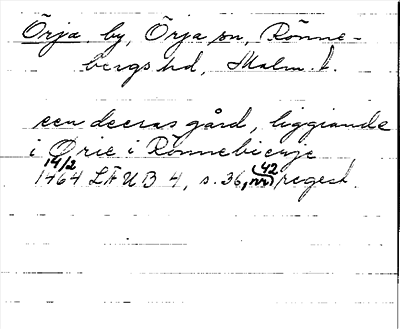 Örja, by, Örja sn, Rönne-
bergs hd, Malm. l.
een deeras gård, liggiande
i Ørie i Rönnebierye
14/2 42
1464 LÄUB 4, s. 36, (nr) regest.